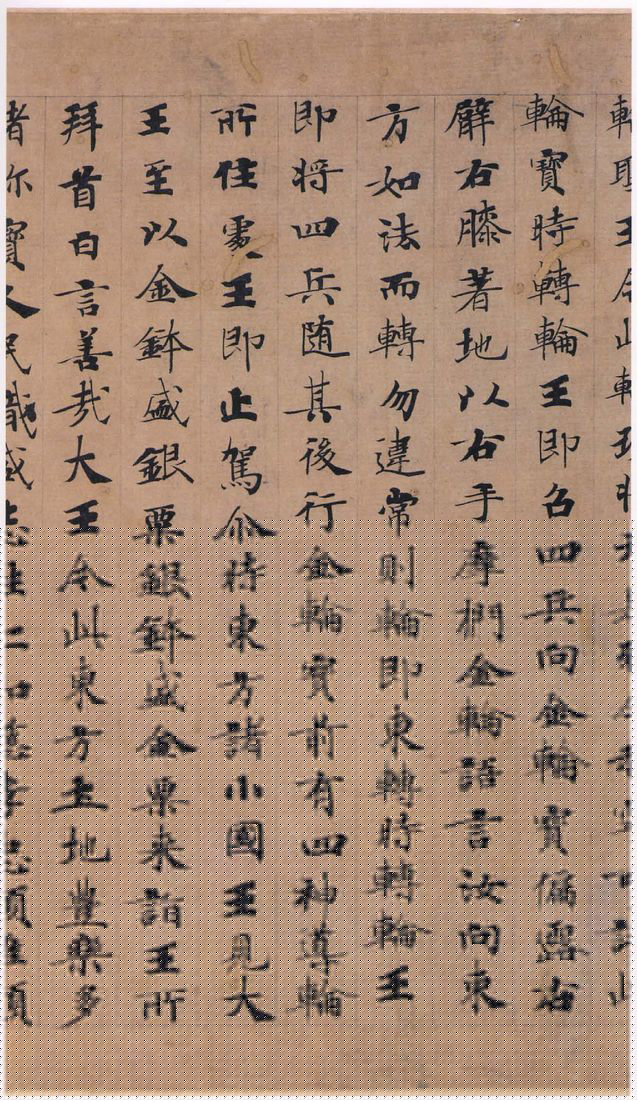 輪寶時轉輪王即召四兵向金輪寶偏露右
臂右膝著地以右手摩捫金輪語言汝向東
方如法而轉勿違常則輪即東轉時轉輪王
即将四兵随其後行金輪寶前有四神導輪
所住處王即止駕尒時東方諸小國王見大
王至以金鉢盛銀粟銀鉢盛金粟来詣王所
拜首白言善哉大王今此東方土地豊樂多
諸珎寶人民熾盛志性仁和慈孝忠順唯願